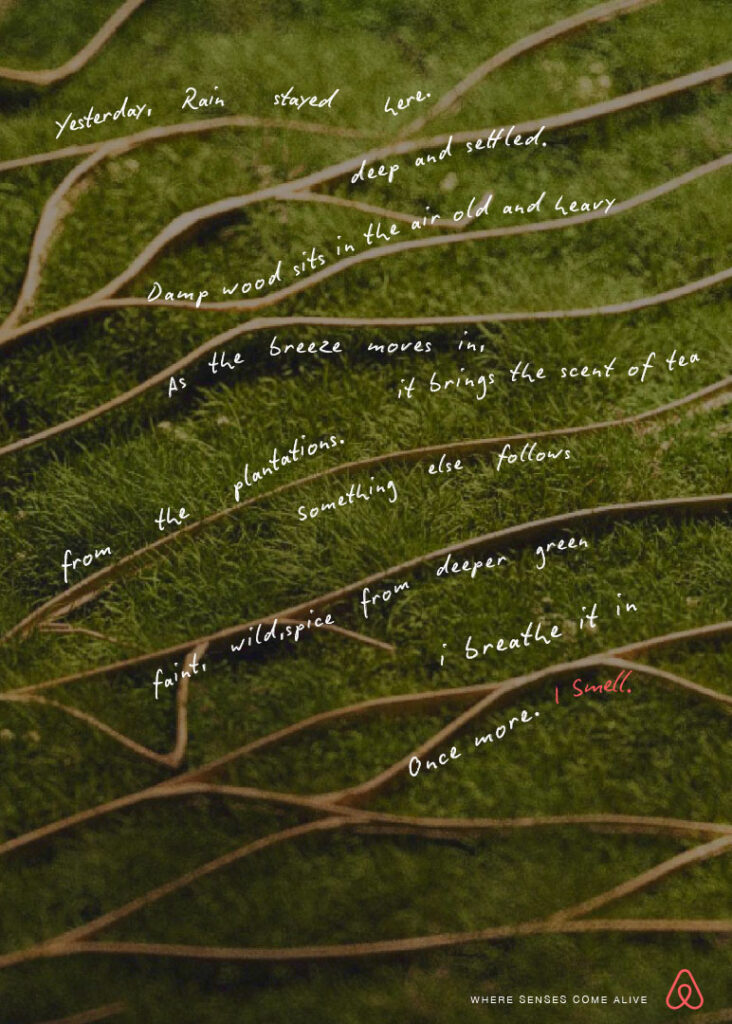 Yesterday, Rain stayed here.
deep and settled.
Damp wood sits in the air old and heavy
As the breeze moves in,
it brings the scent of tea
from the plantations.
something else follows
faint, wild,spice from deeper green
i breathe it in
Once more.
I Smell.
WHERE SENSES COME ALIVE